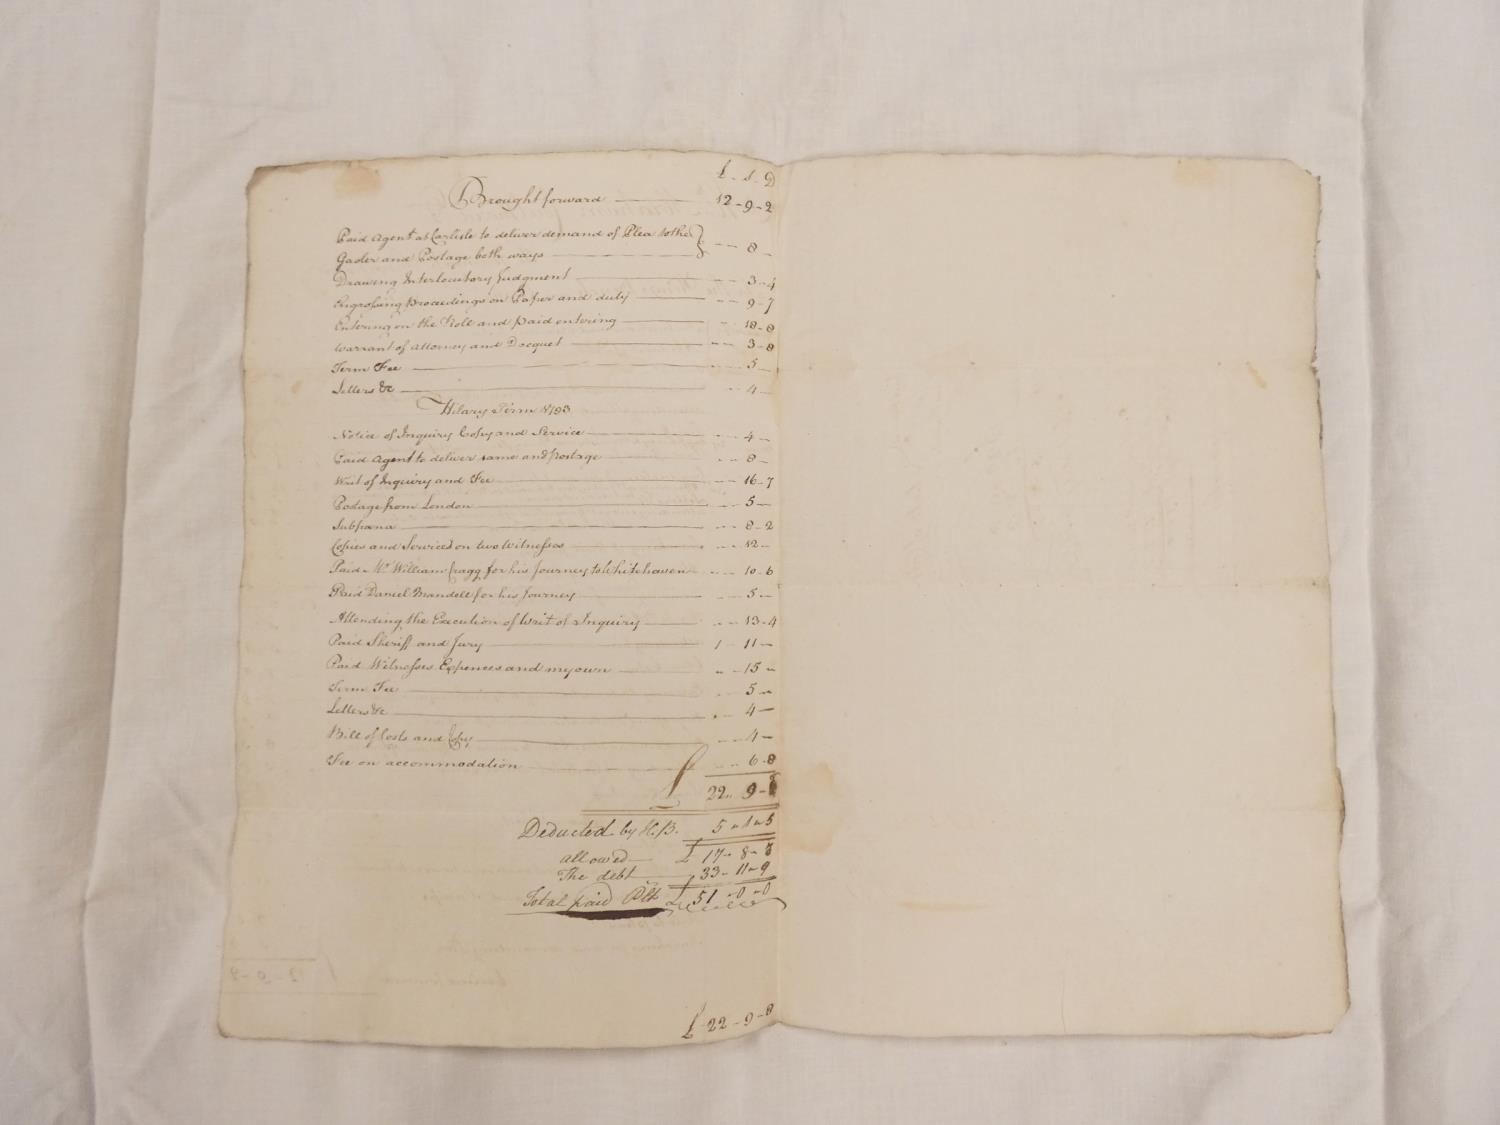 £ - s - D
Brought forward 12 - 9 - 2
Paid Agent at Carlisle to deliver demand of Plea to the
Gaoler and Postage both ways 8 -
Drawing Interlocutory Judgment 3 - 4
Engrossing Proceedings on Paper and duty 9 - 7
Entering on the Roll and paid entering 18 - 8
Warrant of Attorney and Docquet 3 - 8
Term Fee 5 -
Letters &c 4 -
Hilary Term 1793
Notice of Inquiry Copy and Service 4 -
Paid Agent to deliver same and postage 8 -
Writ of Inquiry and Fee 16 - 7
Postage from London 5 -
Subpæna 8 - 2
Copies and Services on two Witnesses 12 -
Paid Mr William Cragg for his Journey to Whitehaven 10 - 6
Paid Daniel Mandell for his Journey 5 -
Attending the Execution of Writ of Inquiry 13 - 4
Paid Sheriff and Jury 1 - 11 -
Paid Witnesses Expences and my own 15 -
Term Fee 5 -
Letters &c 4 -
Bill of Costs and Copy 4 -
Fee on accommodation 6 - 8
£ 22 - 9 - 8
Deducted by H.B. 5 - 1 - 5
allowed £ 17 - 8 - 3
The debt 33 - 11 - 9
Total paid £ 51 - 0 - 0
£ 22 - 9 - 8